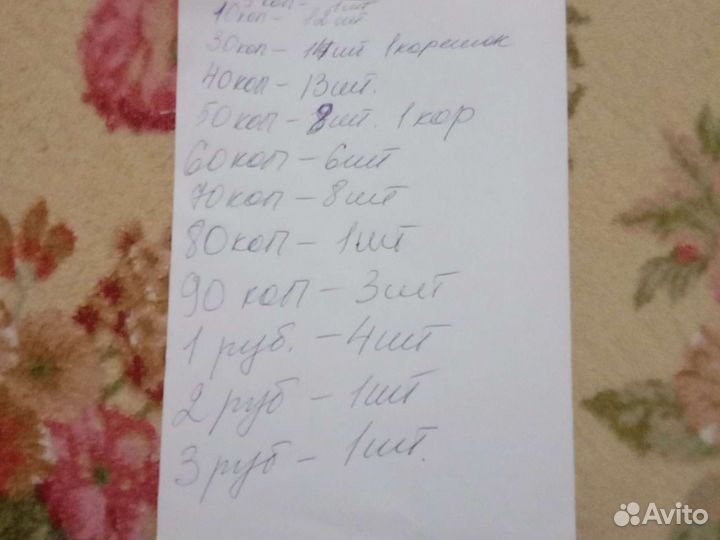 5коп - 1шт
10коп - 12шт
30коп - 14шт 1корешок
40коп - 13шт.
50коп - 8шт. 1кор
60коп - 6шт
70коп - 8шт
80коп - 1шт
90 коп - 3шт
1 руб. - 4шт
2 руб - 1шт
3 руб - 1шт.
Avito